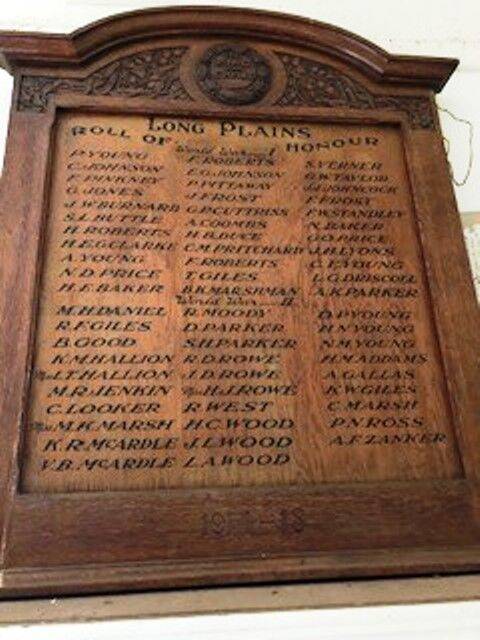 LONG PLAINS
ROLL OF HONOUR
World War I
P. YOUNG F. ROBERTS S. VERNER
C. JOHNSON E.G. JOHNSON G.W. TAYLOR
F. PINKNEY P. PITTAWAY J.J. JOHNCOCK
G. JONES J. FROST F. FROST
J.W. BURNARD G.P. CUTTRISS F.W. STANDLEY
S.L. BUTTLE A. COOMBS N. BAKER
H. ROBERTS H.B. BUCE G.O. PRICE
H.E.G. CLARKE C.M. PRITCHARD J.H. LYONS
A. YOUNG F. ROBERTS C.F. YOUNG
N.D. PRICE T. GILES L.G. DRISCOLL
H.F. BAKER B.K. MARSHMAN A.K. PARKER
World War II
M.H. DANIEL R. MOODY D.P. YOUNG
R.F. GILES D. PARKER H.N. YOUNG
B. GOOD S.H. PARKER N.M. YOUNG
K.M. HALLION R.D. ROWE H.M. ADDAMS
I.T. HALLION J.D. ROWE A. GALLAS
M.R. JENKIN H.J. ROWE K.W. GILES
C. LOOKER R. WEST C. MARSH
M.K. MARSH H.C. WOOD P.N. ROSS
K.R. McARDLE J.L. WOOD A.F. ZANKER
V.B. McARDLE L.A. WOOD
1914-18